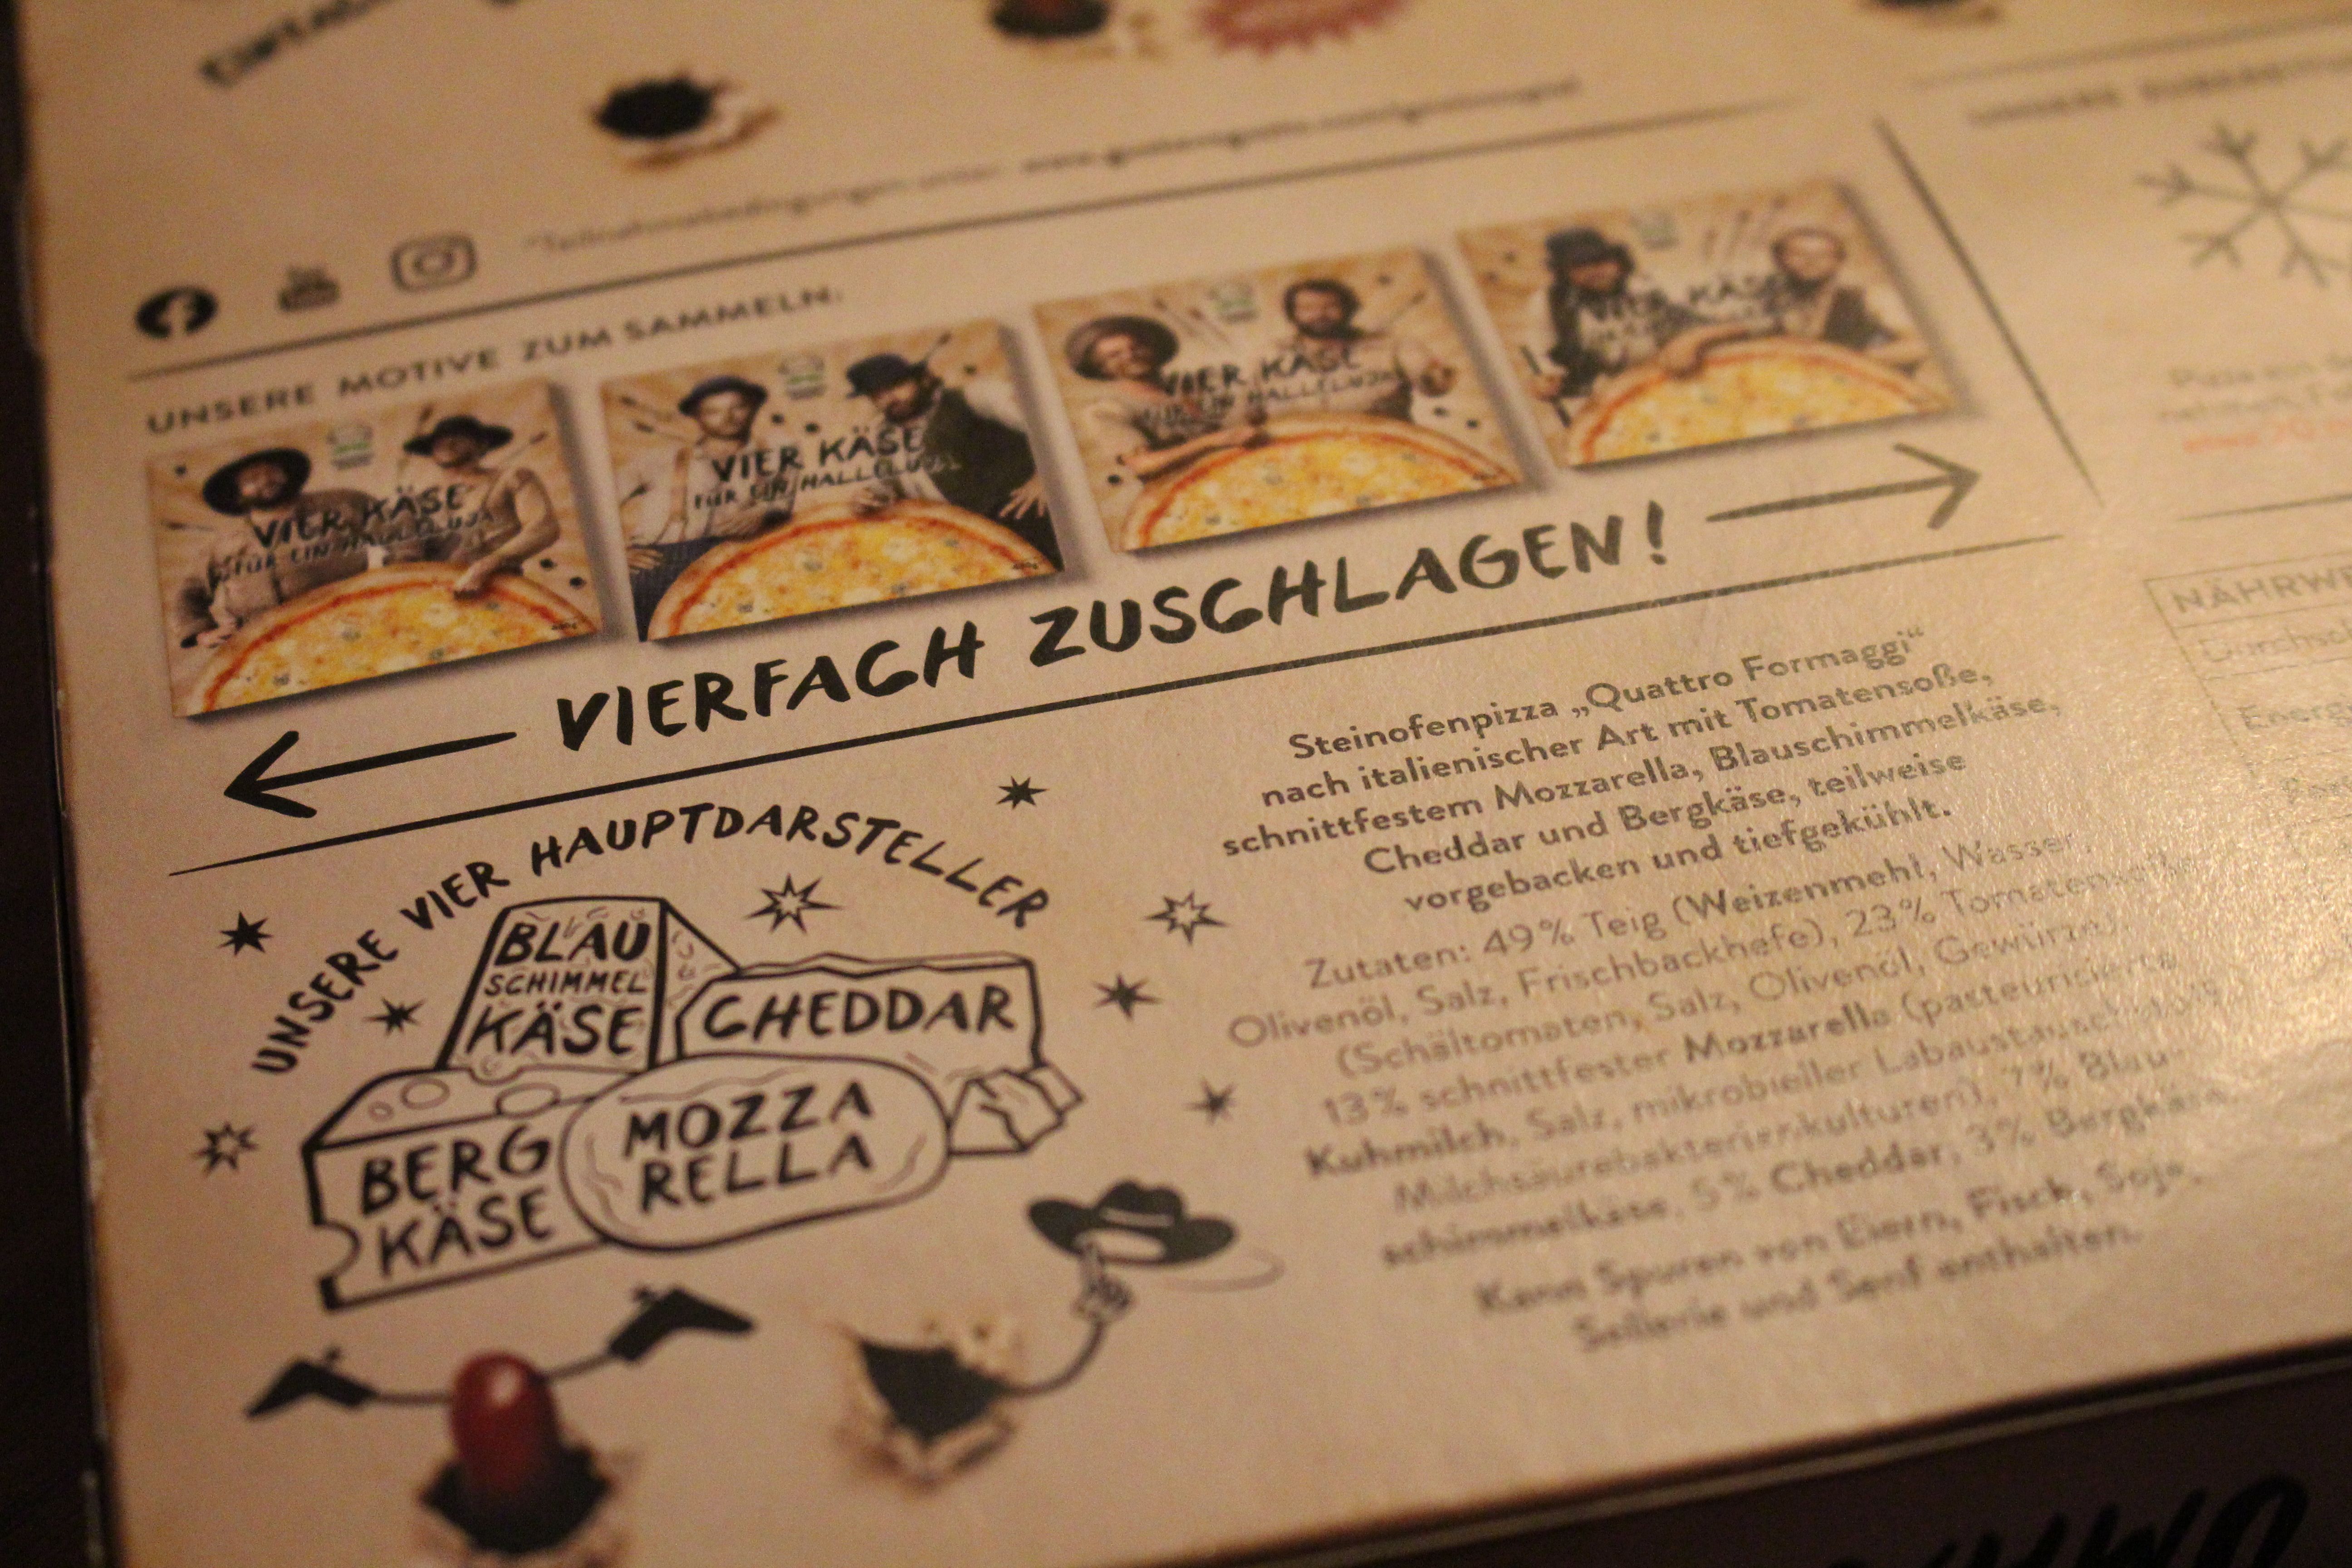 UNSERE MOTIVE ZUM SAMMELN:
VIER KÄSE
FÜR EIN HALLELUJA
VIER KÄSE
FÜR EIN HALLELUJA
VIER KÄSE
FÜR EIN HALLELUJA
VIER KÄSE
VIERFACH ZUSCHLAGEN!
UNSERE VIER HAUPTDARSTELLER
BLAU
SCHIMMEL
KÄSE
CHEDDAR
BERG
KÄSE
MOZZA
RELLA
Steinofenpizza „Quattro Formaggi“
nach italienischer Art mit Tomatensoße,
schnittfestem Mozzarella, Blauschimmelkäse,
Cheddar und Bergkäse, teilweise
vorgebacken und tiefgekühlt.
Zutaten: 49% Teig (Weizenmehl, Wasser,
Olivenöl, Salz, Frischbackhefe), 23% Tomatensoße
(Schältomaten, Salz, Olivenöl, Gewürze),
13% schnittfester Mozzarella (pasteurisierte
Kuhmilch, Salz, mikrobieller Labaustauschstoff,
Milchsäurebakterienkulturen), 7% Blau-
schimmelkäse, 5% Cheddar, 3% Bergkäse.
Kann Spuren von Eiern, Fisch, Soja,
Sellerie und Senf enthalten.